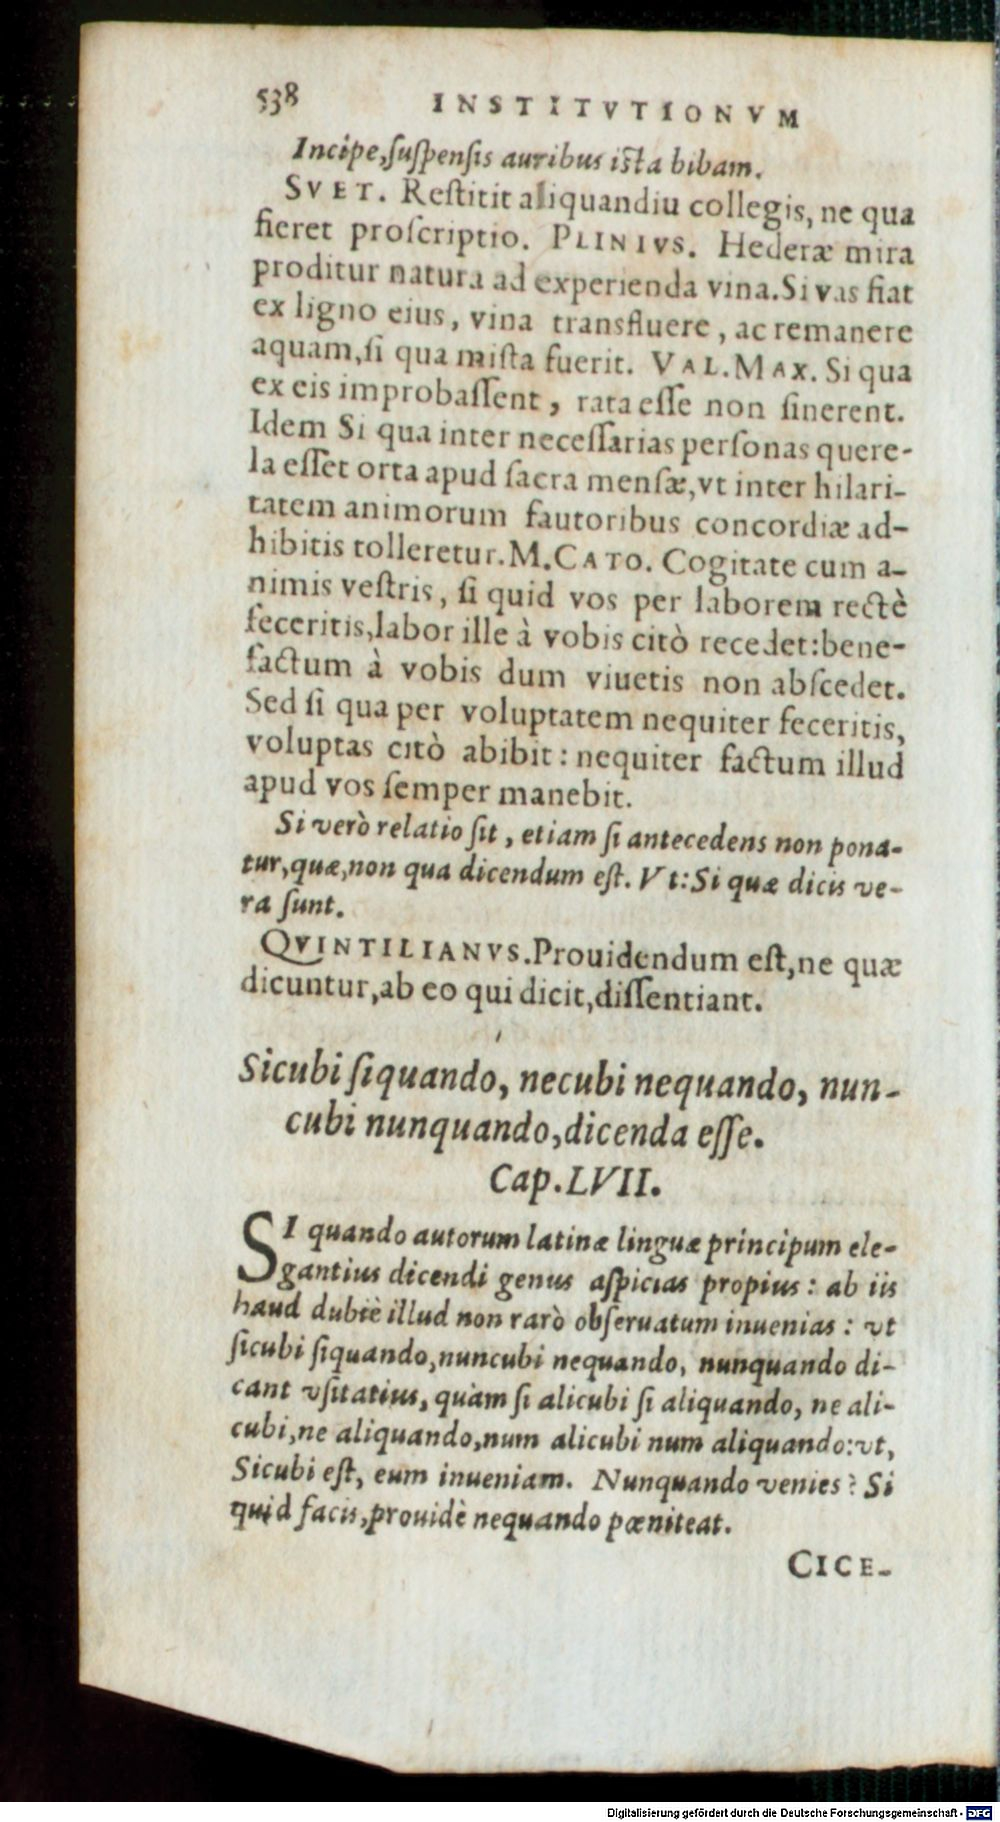 538 INSTITVTIONVM
Incipe,ſuſpenſis auribus iſta bibam.
SVET. Reſtitit aliquandiu collegis, ne qua
fieret proſcriptio. PLINIVS. Hederæ mira
proditur natura ad experienda vina.Si vas fiat
ex ligno eius, vina transfluere, ac remanere
aquam,ſi qua miſta fuerit. VAL.MAX. Si qua
ex eis improbaſſent, rata eſſe non ſinerent.
Idem Si qua inter neceſſarias perſonas quere-
la eſſet orta apud ſacra menſæ,vt inter hilari-
tatem animorum fautoribus concordiæ ad-
hibitis tolleretur.M.CATO. Cogitate cum a-
nimis veſtris, ſi quid vos per laborem rectè
feceritis,labor ille à vobis citò recedet:bene-
factum à vobis dum viuetis non abſcedet.
Sed ſi qua per voluptatem nequiter feceritis,
voluptas citò abibit: nequiter factum illud
apud vos ſemper manebit.
Si verò relatio ſit, etiam ſi antecedens non pona-
tur,quæ,non qua dicendum eſt. Vt:Si quæ dicis ve-
ra ſunt.
QVINTILIANVS.Prouidendum eſt,ne quæ
dicuntur,ab eo qui dicit,diſſentiant.
Sicubi ſiquando, necubi nequando, nun-
cubi nunquando,dicenda eſſe.
Cap.LVII.
SI quando autorum latinæ linguæ principum ele-
gantius dicendi genus aſpicias propius: ab iis
haud dubiè illud non rarò obſeruatum inuenias: vt
ſicubi ſiquando,nuncubi nequando, nunquando di-
cant vſitatius, quàm ſi alicubi ſi aliquando, ne ali-
cubi,ne aliquando,num alicubi num aliquando:vt,
Sicubi eſt, eum inueniam. Nunquando venies? Si
quid facis,prouidè nequando pœniteat.
CICE-
Digitalisierung gefördert durch die Deutsche Forschungsgemeinschaft - DFG